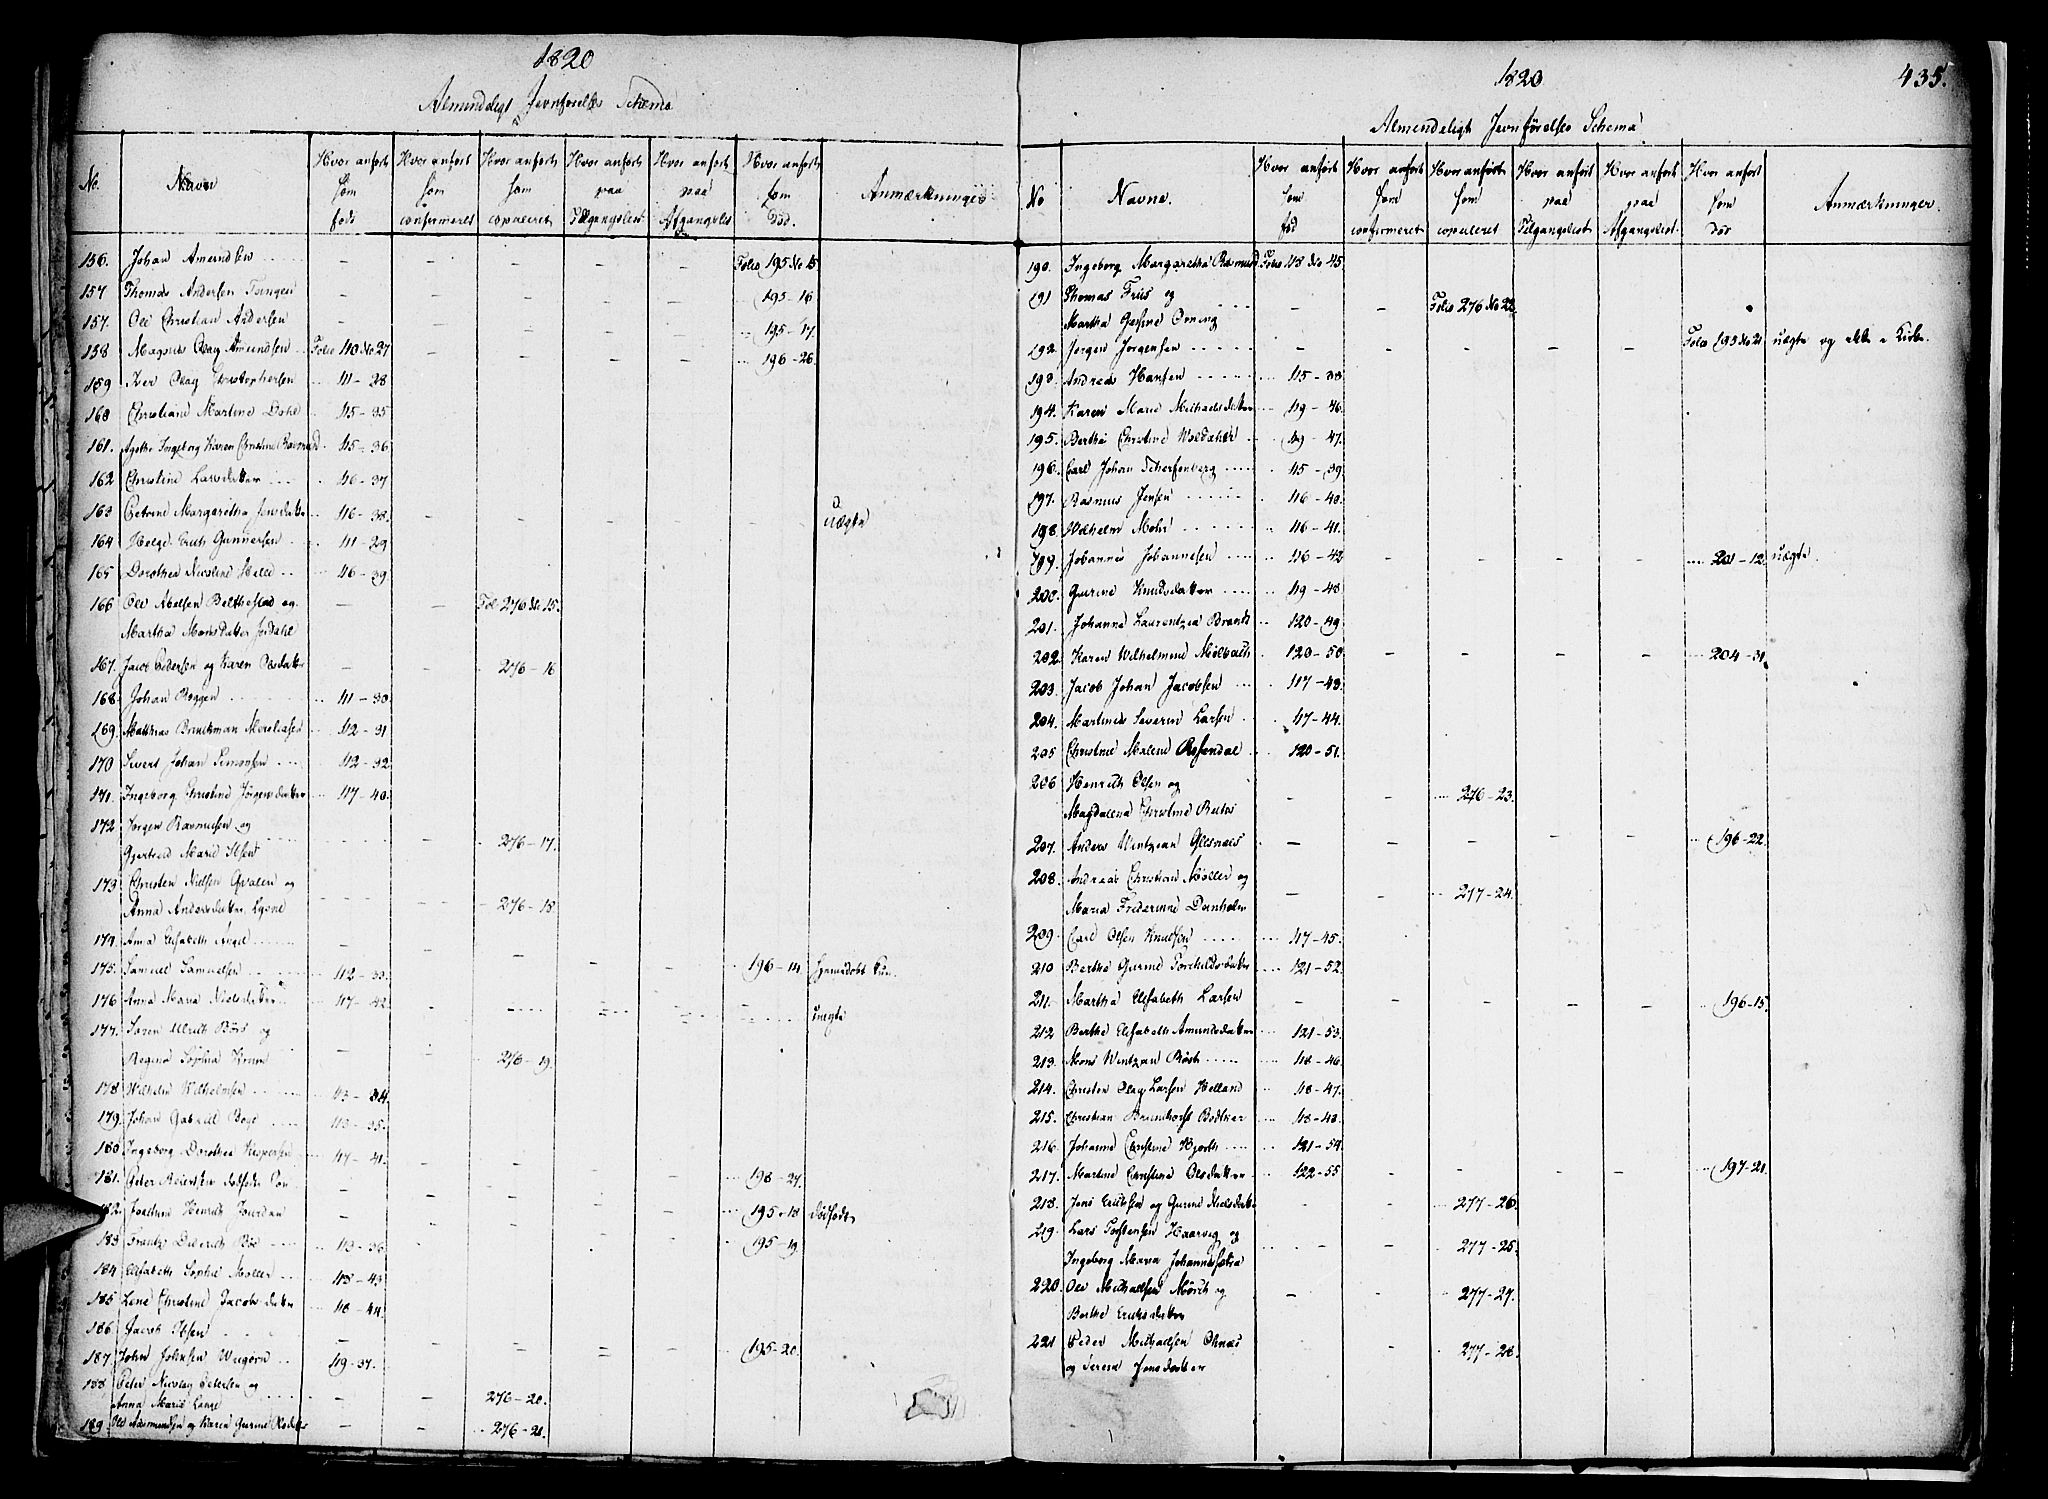 1820
Almindeligt Jevnførelses Schema
No. Navne Hvor anført som født Hvor anført som confirmeret Hvor anført som copuleret Hvor anført paa Tilgangslist. Hvor anført paa Afgangslist. Hvor anført som Død. Anmærkninger
156. Johan Amundsen - - - - - Folio 195 No 15
157 Thomas Andersen - - - - - 195 - 16
157. Ole Christian Andersen - - - - - 195 - 17.
158 Magnus Olay Amundsen Folio 110 No 27 - - - - 196 - 26.
159 Iver Olay Christophersen 111 - 28
160 Christiane Martine 115 - 35
161. Agathe Ingeborg Karen Christine Rasmusd. 115 - 36
162 Christine Larsdatter 116 - 37
163 Petrine Margaretha Jensdatter 116 - 38. - - - - - uægte
164 Helge Erich Gunnersen 111 - 29
165 Dorothea Nicoline 116 - 39
166 Ole Abelsen og - - Fol 276 No 15.
Martha Monsdatter
167. Jacob Pedersen og Karen Olsdatter - - 276 - 16
168. Johan Roggen 111 - 30
169 Matthias Brinckman 112 - 31
170 Sivert Johan Simonsen 112 - 32
171. Ingeborg Christine Jørgensdatter 117 - 40.
172 Jørgen Rasmusen og
Gjertrud Marie Olsen - - 276 - 17.
173 Christen Nielsen Qvalen og
Anna Andersdatter Lysne - - 276 - 18
174. Ana Elisabeth Angel - - - - - 196 - 14
175. Samuel Samuelsen 112 - 33. hjemmedøbt
176 Anna Maria Nielsdatter 117 - 42. - - - - - uægte
177. Søren Ulrich Børs og
Regina Sophia - - 276 - 19.
178 Wilhelm Wilhelmsen 113 - 34.
179. Johan Gabriel Boge 113 - 35.
180 Ingeborg Dorothea Kaspersen 117 - 41. - - - - 198 - 27.
181. Peter Reiersen - - - - - 195 - 18 dødfødt
182. Joachim Henrich Jourdan - - - - - 195 - 19
183 Frantz Diderich Bøe 113 - 36
184 Elisabeth Sophie Møller 118 - 43
185 Lene Christine Jacobsdatter 118 - 44.
186 Jacob Ibsen - - - - - 195 - 20.
187. John Johnsen 119 - 37.
188 Peter Nicolay Petersen og
Anna Marie Lange - - 276 - 20.
189. Ole Aamundsen og Karen Gurine Olsdatter - - 276 - 21.
1820 435.
Almindeligt Jevnførelses Schema
No Navne. Hvor anført som fød Hvor anført som confirmeret Hvor anført som copuleret Hvor anført paa Tilgangslist Hvor anført paa Afgangslist. Hvor anført som Død Anmærkninger.
190. Ingeborg Margaretha Rasmusd. Folio 118 No 45
191 Thomas Friis og
Martha Gesine - - Folio 276 No 22.
192. Jørgen Jørgensen - - - - - Folio 195 No 21 uægte og ikke i Kirke.
193. Andreas Hansen 115 - 38
194. Karen Marie Michaelsdatter 119 - 46.
195. Berthe Christine 119 - 47.
196. Carl Johan Scherfenberg 115 - 39
197. Rasmus Jensen 116 - 40.
198 Wilhelm Mohr 116 - 41.
199. Johannes Johannesen 116 - 42 201 - 12. uægte.
200. Gurine Knudsdatter 119 - 48
201. Johanne Laurentzia Brandt 120 - 49
202. Karen Wilhelmine Mølbach 120 - 50 - - - - 204 - 31.
203. Jacob Johan Jacobsen 117 - 43.
204. Martinus Severin Larsen 117 - 44.
205 Christine Malene Rosendal 120 - 51.
206 Henrich Olsen og
Magdalena Christine - - 276 - 23.
207. Anders Wintzian - - - - - 196 - 22.
208. Andreas Christian Møller og
Maria Frederine Danholm - - 277 - 24.
209. Carl Olsen Knudsen 117 - 45.
210 Berthe Gurine Torchildsdatter 121 - 52.
211. Martha Elisabeth Larsen - - - - - 196 - 15.
212 Berthe Elisabeth Amundsdatter 121 - 53.
213. Mons Wintzan Røst 118 - 46.
214. Christen Olay Larsen Helland 118 - 47.
215. Christian Brunchorst Bødtker 118 - 48.
216. Johanne Christine Hjorth 121 - 54.
217. Martine Christine Olsdatter 122 - 55 - - - - 197 - 21.
218. Jens Erichsen og Gurine Nielsdatter - - 277 - 26.
219. Lars Torstensen Haarvig og
Ingeborg Maria - - 277 - 25.
220. Ole Michaelsen Mørch og
Berthe Ericksdatter - - 277 - 27.
221 Peder Michaelsen
og Serena Jonsdatter - - 277 - 28.